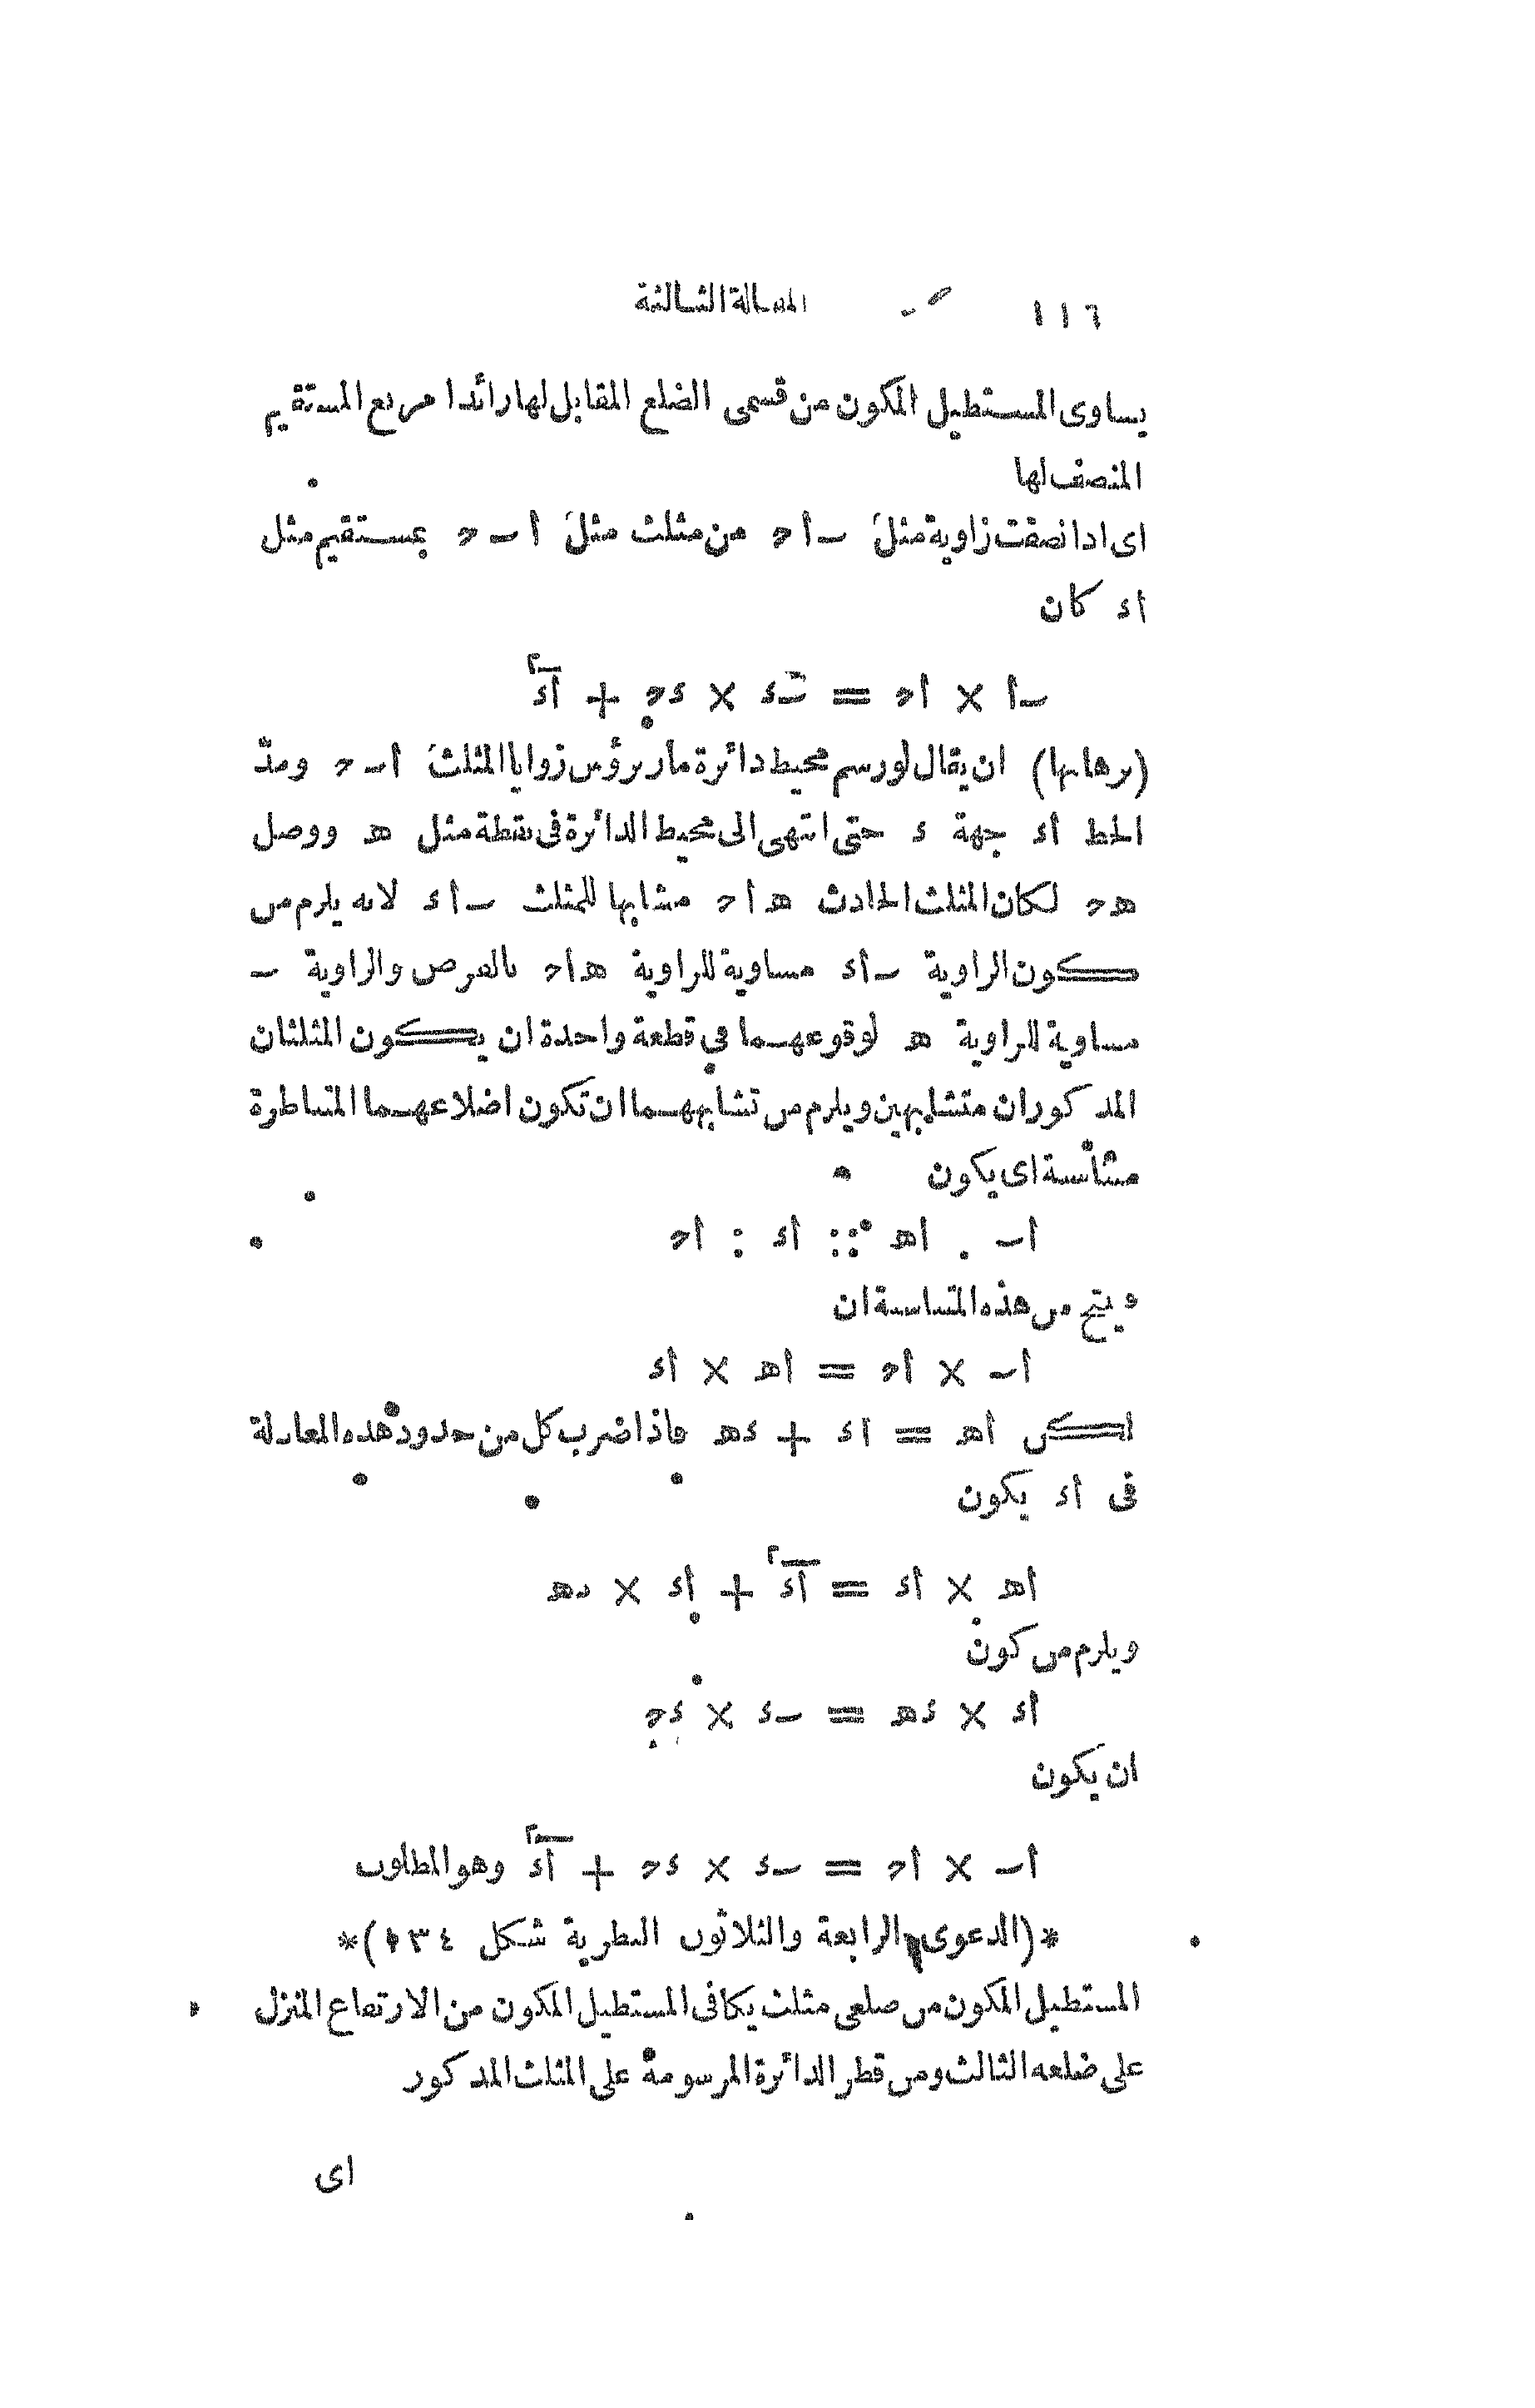 ١١٦ المقالة الثالثة
يساوى المستطيل المكون من قسمى الضلع المقابل لها زائدا مربع المستقيم
المنصف لها
اى اذا نصفت زاوية مثل ب‍ا ح من مثلث مثل ا ب‍ ح بمستقيم مثل
اء كان
ب‍ا × اح = ب‍ء × ءح + اء٢
(برهانها) ان يقال لو رسم محيط دائرة مار برؤس زوايا المثلث اب‍ ح ومدّ
الخط اء جهة ء حتى انتهى الى محيط الدائرة فى نقطة مثل ه‍ ووصل
ه‍ح لكان المثلث الحادث ه‍ اح مشابها للمثلث ب‍اء لانه يلزم من
كون الزاوية ب‍اء مساوية للزاوية ه‍اح بالفرض والزاوية ب‍
مساوية للزاوية ه‍ لوقوعهما فى قطعة واحدة ان يكون المثلثان
المذكوران متشابهين ويلزم من تشابههما ان تكون اضلاعهما المتناظرة
متناسبة اى يكون
اب‍ : اه‍ :: اء : اح
وينتج من هذه المتناسبة ان
اب‍ × اح = اه‍ × اء
لكن اه‍ = اء + ءه‍ فاذا ضرب كل من حدود هذه المعادلة
فى اء يكون
اه‍ × اء = اء٢ + اء × ءه‍
ويلزم من كون
اء × ءه‍ = ب‍ء × ءح
ان يكون
اب‍ × اح = ب‍ء × ءح + اء٢ وهو المطلوب
*(الدعوى الرابعة والثلاثون النظرية شكل ١٣٤)*
المستطيل المكون من ضلعى مثلث يكافى المستطيل المكون من الارتفاع المنزل
على ضلعه الثالث ومن قطر الدائرة المرسومة على المثلث المذكور
اى